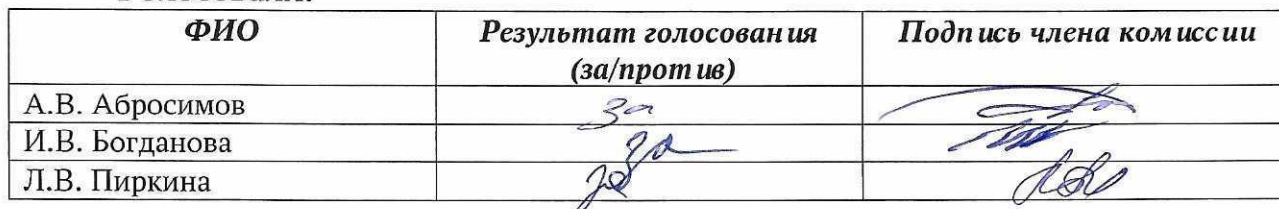 ФИО Результат голосования Подпись члена комиссии
(за/против)
А.В. Абросимов за
И.В. Богданова за
Л.В. Пиркина за